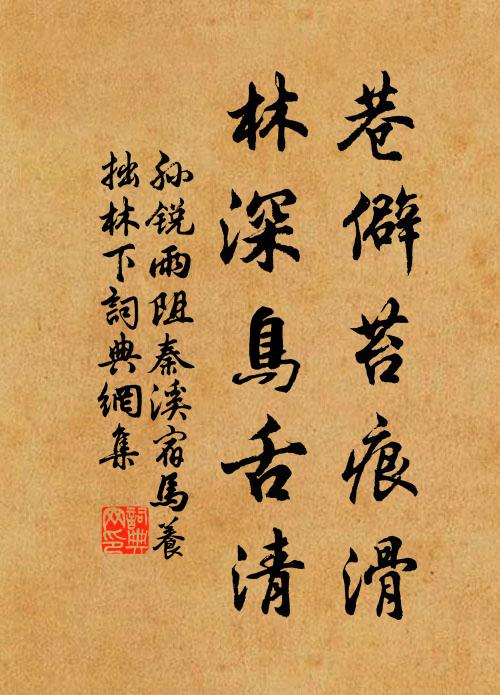 巷僻苔痕滑
林深鳥舌清
孫銳雨阻秦溪宿馬養
拙林下詞典網集
詞典
网印